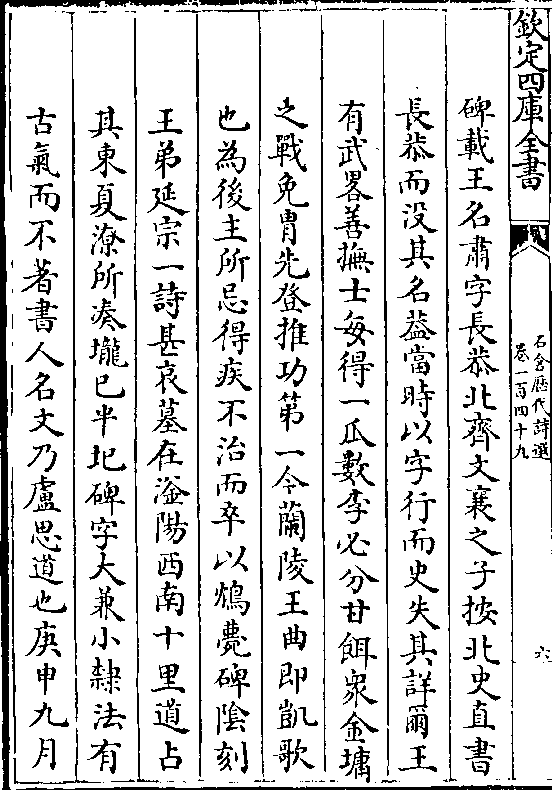 欽定四庫全書
石倉歷代詩選
卷一百四十九
六
碑載王名肅字長恭北齊文襄之子按北史直書
長恭而没其名葢當時以字行而史失其詳爾王
有武畧善撫士每得一瓜數李必分甘餌衆金墉
之戰免胄先登推功第一今蘭陵王曲即凱歌
也為後主所忌得疾不治而卒以鴆薨碑陰刻
王弟延宗一詩甚哀墓在滏陽西南十里道占
其東夏潦所凑壠已半圮碑字大兼小隸法有
古氣而不著書人名文乃盧思道也庚申九月